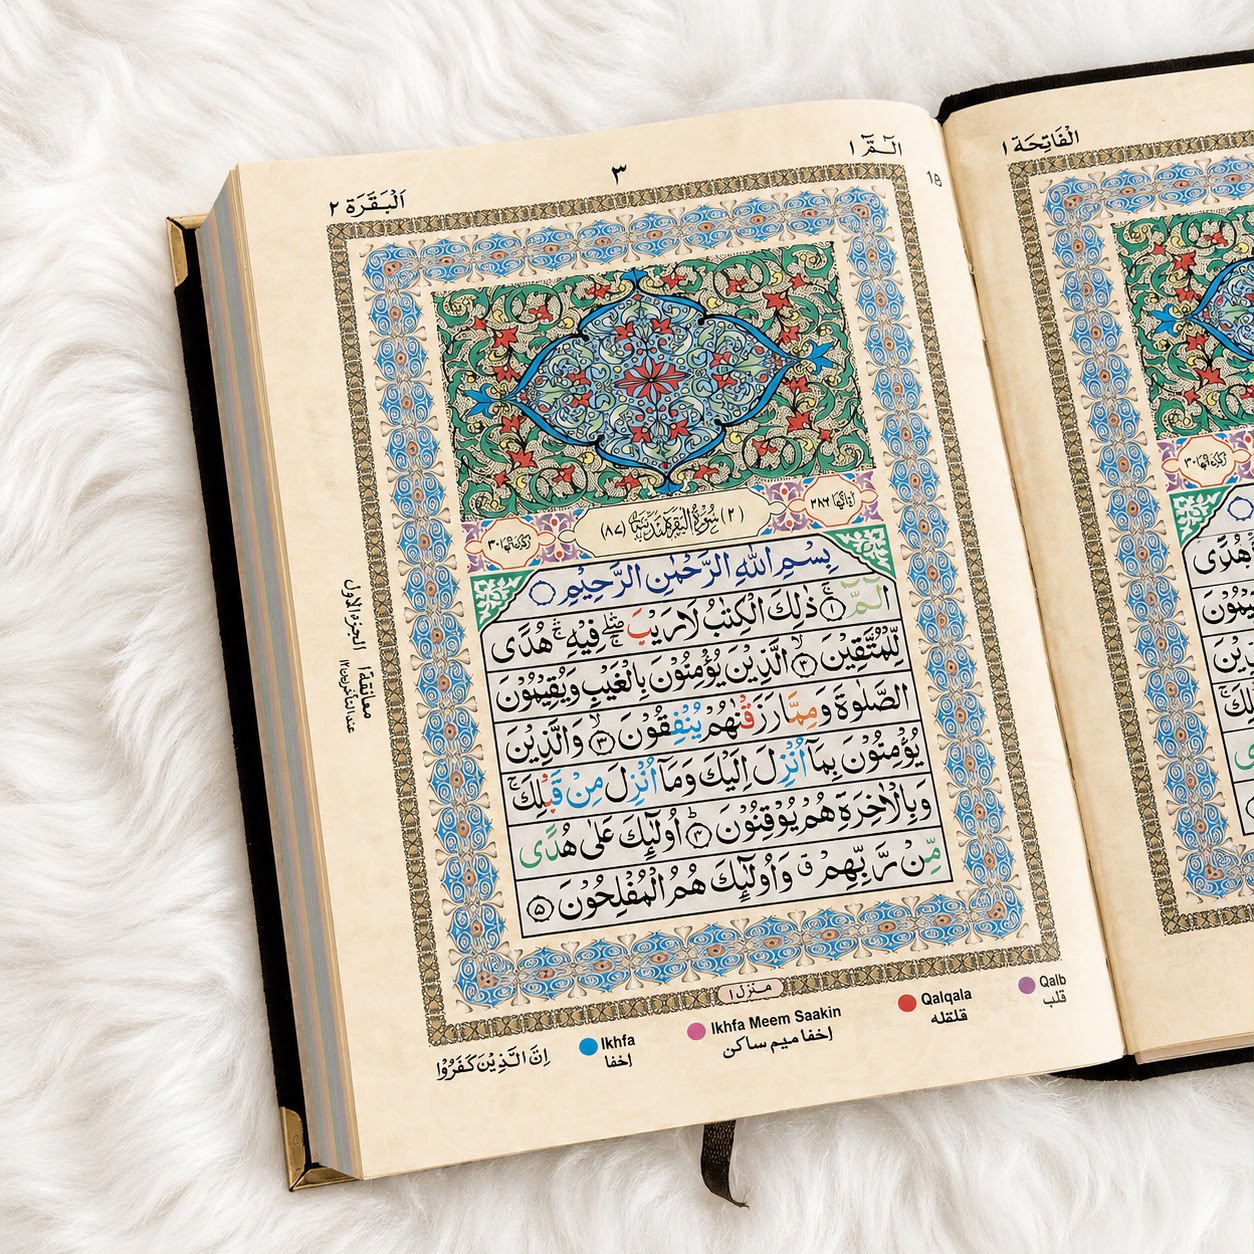 الٓـمّٓ ١
٣
اَلْبَقَرَة ٢
اٰیَاتُهَا ٢٨٦
(٢) سُوْرَةُ الْبَقَرَةِ مَدَنِيَّةٌ (٨٧)
بِسْمِ اللّٰهِ الرَّحْمٰنِ الرَّحِيْمِ
الٓـمّٓ ۚ ﴿١﴾ ذٰلِكَ الْكِتٰبُ لَا رَيْبَ ۛۖ فِيْهِ ۛۚ هُدًى
لِّلْمُتَّقِيْنَ ۙ ﴿٢﴾ الَّذِيْنَ يُؤْمِنُوْنَ بِالْغَيْبِ وَيُقِيْمُوْنَ
الصَّلٰوةَ وَمِمَّا رَزَقْنٰهُمْ يُنْفِقُوْنَ ۙ ﴿٣﴾ وَالَّذِيْنَ
يُؤْمِنُوْنَ بِمَآ اُنْزِلَ اِلَيْكَ وَمَآ اُنْزِلَ مِنْ قَبْلِكَ ۚ
وَبِالْاٰخِرَةِ هُمْ يُوْقِنُوْنَ ﴿٤﴾ اُولٰٓئِكَ عَلٰى هُدًى
مِّنْ رَّبِّهِمْ ۗ وَاُولٰٓئِكَ هُمُ الْمُفْلِحُوْنَ ﴿٥﴾
معانقة ١ الجزء الاول
عند المتأخرين ١٢
منزل ١
Qalb
قلب
Qalqala
قلقله
Ikhfa Meem Saakin
إخفا ميم ساكن
Ikhfa
إخفا
اِنَّ الَّذِيْنَ كَفَرُوْا
الْفَاتِحَة ١